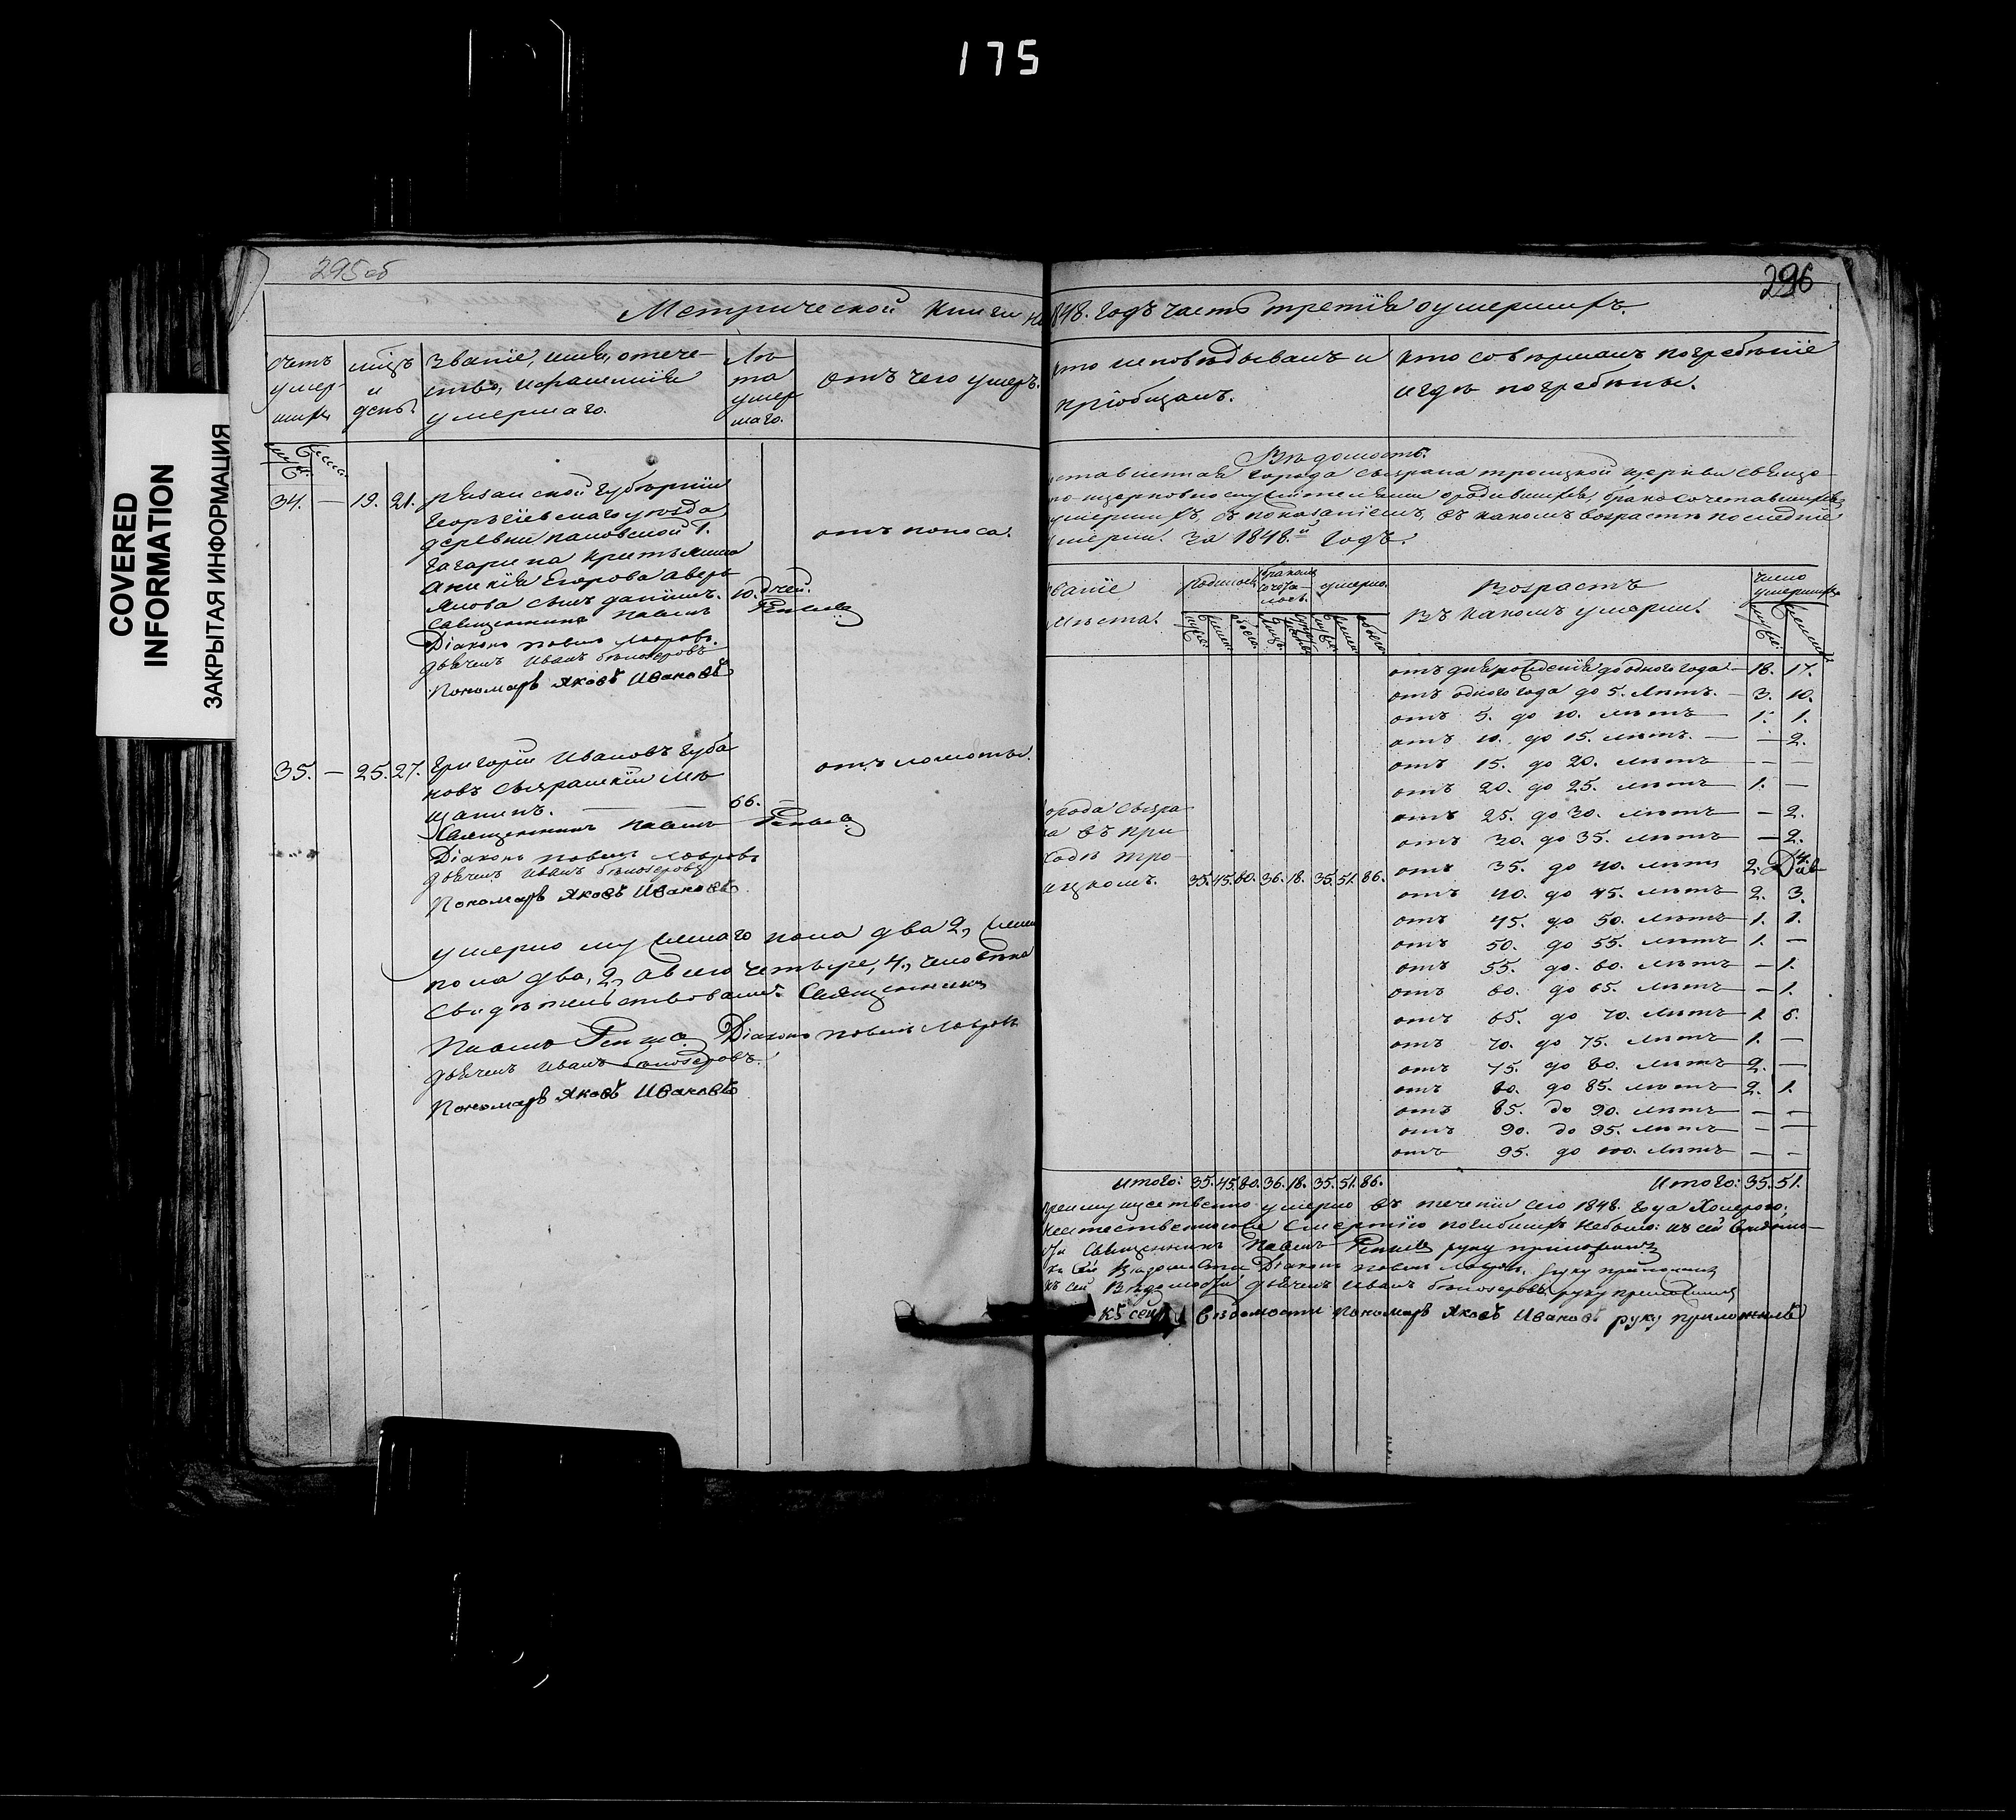 175
COVERED
INFORMATION
ЗАКРЫТАЯ ИНФОРМАЦИЯ
295об
296
Метрической книги на 1848. годъ часть третiя о умершихъ.
Счетъ умер-шихъ
мцъ и день.
Званiе, имя, отече-
ство, и фамилiя
умершаго.
Лѣ-
та
умер
шаго.
отъ чего умеръ.
кто исповѣдывалъ и
прiобщалъ.
кто совершалъ погребенiе
и гдѣ погребены.
34. — 19. 21.
Георгiевскаго уѣзда
деревни Пановской Г.
Гагарина крестьянина
Егорова Аверь
янова сынъ Данiилъ. 10. дней.
отъ поноса.
Священникъ Павелъ
Дiаконъ Павелъ Лавровъ.
Дьячекъ Иванъ Бѣлозеровъ
Пономарь Яковъ Ивановъ
35. — 25. 27.
Григорiй Ивановъ Губа
новъ Сызранскiй мѣ
щанинъ. — 66. —
отъ ломоты.
Священникъ Павелъ
Дiаконъ Павелъ Лавровъ
Дьячекъ Иванъ Бѣлозеровъ
Пономарь Яковъ Ивановъ
умерло мужескаго пола два 2, женск
пола два, 2, а всего четыре, 4, человѣка
Свидѣтельствовали: Священникъ
Павелъ Дiаконъ Павелъ Лавровъ
Дьячекъ Иванъ Бѣлозеровъ.
Пономарь Яковъ Ивановъ
Вѣдомость.
ставленная города Сызрана троицкой церкви священо-
но-церковнослужителями о родившихся, бракосочетавшихся,
умершихъ, съ показанiемъ, въ какомъ возрастѣ последнiе
умерли. За 1848.й годъ.
званiе
мѣста.
родилось
бракомъ
сочета-
лось.
умерло.
Возрастъ
въ какомъ умерли.
число
умершихъ
города Сызра
на въ при
ходѣ тро
ицкомъ. 35. 45. 80. 36. 18. 35. 51. 86.
отъ дня рожденiя до одного года — 18. 17.
отъ одного года до 5. лѣтъ. — 3. 10.
отъ 5. до 10. лѣтъ — 1. 1.
отъ 10. до 15. лѣтъ. — — 2.
отъ 15. до 20. лѣтъ — — —
отъ 20. до 25. лѣтъ — 1. —
отъ 25. до 30. лѣтъ — — 2.
отъ 30. до 35. лѣтъ — — 2.
отъ 35. до 40. лѣтъ 2. 4.
отъ 40. до 45. лѣтъ 2. 3.
отъ 45. до 50. лѣтъ 1. 1.
отъ 50. до 55. лѣтъ 1. —
отъ 55. до 60. лѣтъ — 1.
отъ 60. до 65. лѣтъ — 1.
отъ 65. до 70. лѣтъ 1. 6.
отъ 70. до 75. лѣтъ 1. —
отъ 75. до 80. лѣтъ 2. —
отъ 80. до 85. лѣтъ 2. 1.
отъ 85. до 90. лѣтъ — —
отъ 90. до 95. лѣтъ — —
отъ 95. до 100. лѣтъ — —
Итого: 35. 45. 80. 36. 18. 35. 51. 86.
Итого: 35. 51.
преимущественно умерло въ теченiи сего 1848. года Холерою;
неестественною смертiю погибшихъ небыло: къ сей вѣдомо-
сти Священникъ Павелъ руку приложилъ
къ сей Вѣдомости Дiаконъ Павелъ Лавровъ руку приложилъ
къ сей Вѣдомости дьячекъ Иванъ Бѣлозеровъ руку приложилъ
Къ сей Вѣдомости пономарь Яковъ Ивановъ руку приложилъ